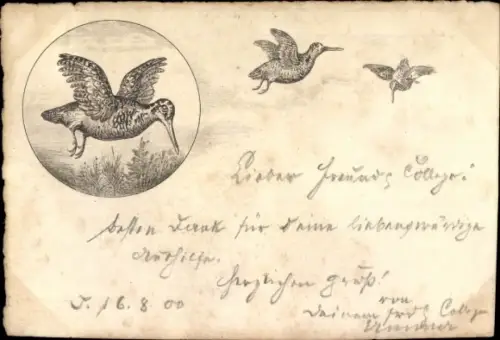 Lieber Freund & College!
besten Dank für Deine liebenswürdige
Aushilfe.
Herzlichen Gruß!
von
D. 16.8.00 Deinem Frd & College